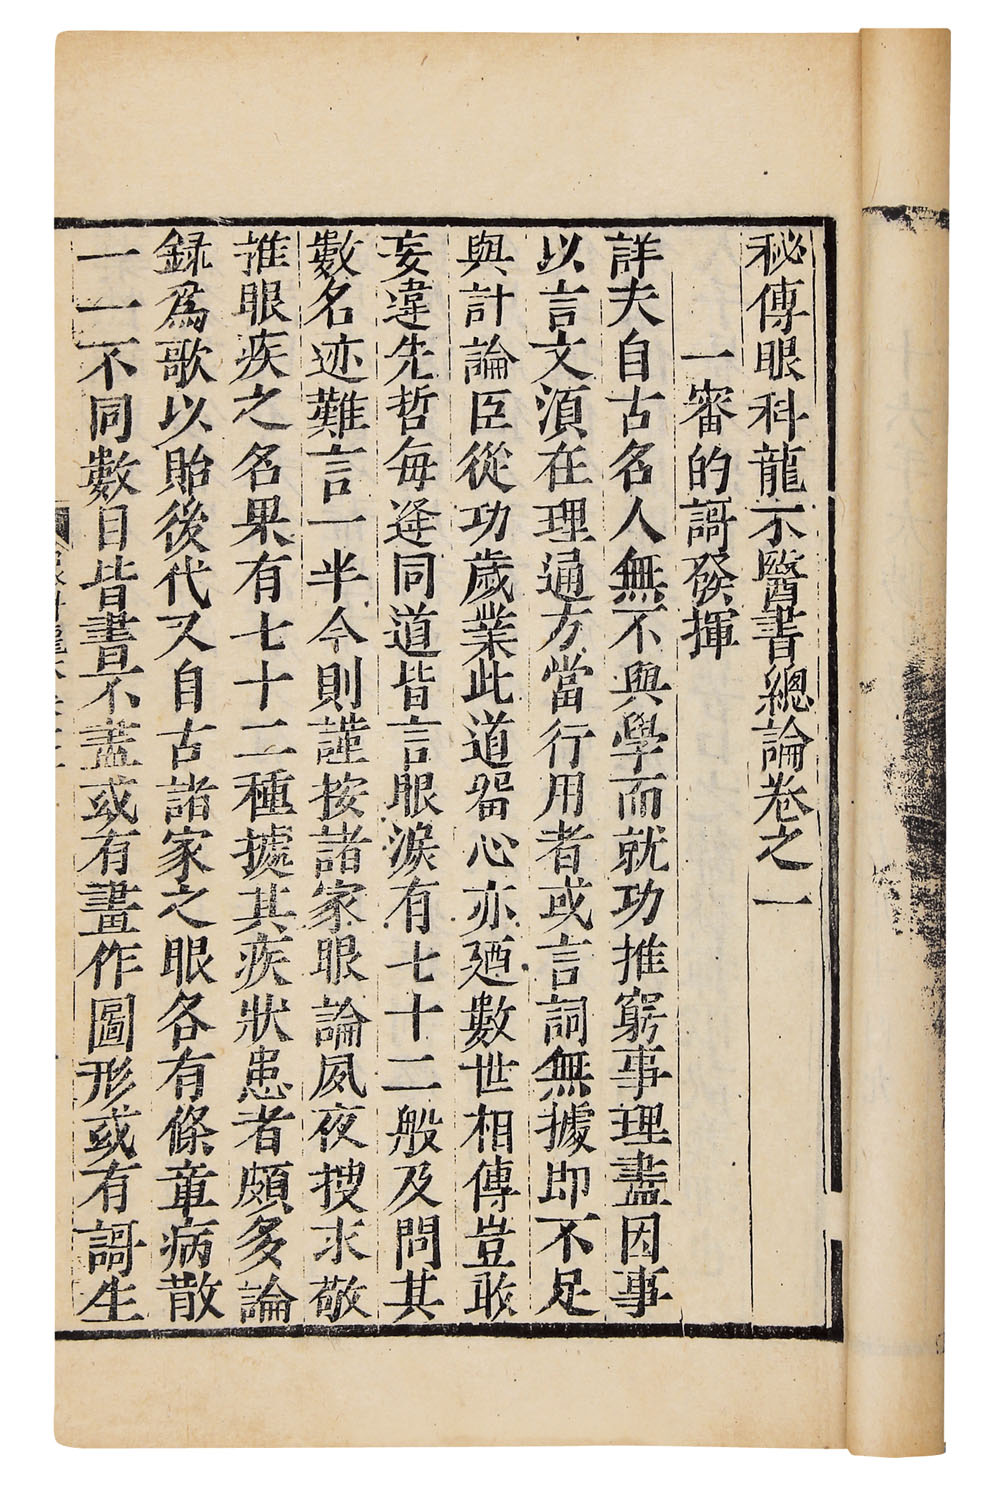 秘傳眼科龍木醫書總論卷之一
一審的謌發揮
詳夫自古名人無不與學而就功推窮事理盡因事
以言文湏在理通方當行用者或言詞無據即不足
與計論臣從功歲業此道畱心亦廼數世相傳豈敢
妄違先哲每逄同道皆言眼淚有七十二般及問其
數名迹難言一半今則謹按諸家眼論夙夜搜求敬
推眼疾之名果有七十二種據其疾狀患者頗多論
録爲歌以貽後代又自古諸家之眼各有條章病散
一一不同數目皆書不盡或有畫作圖形或有謌生